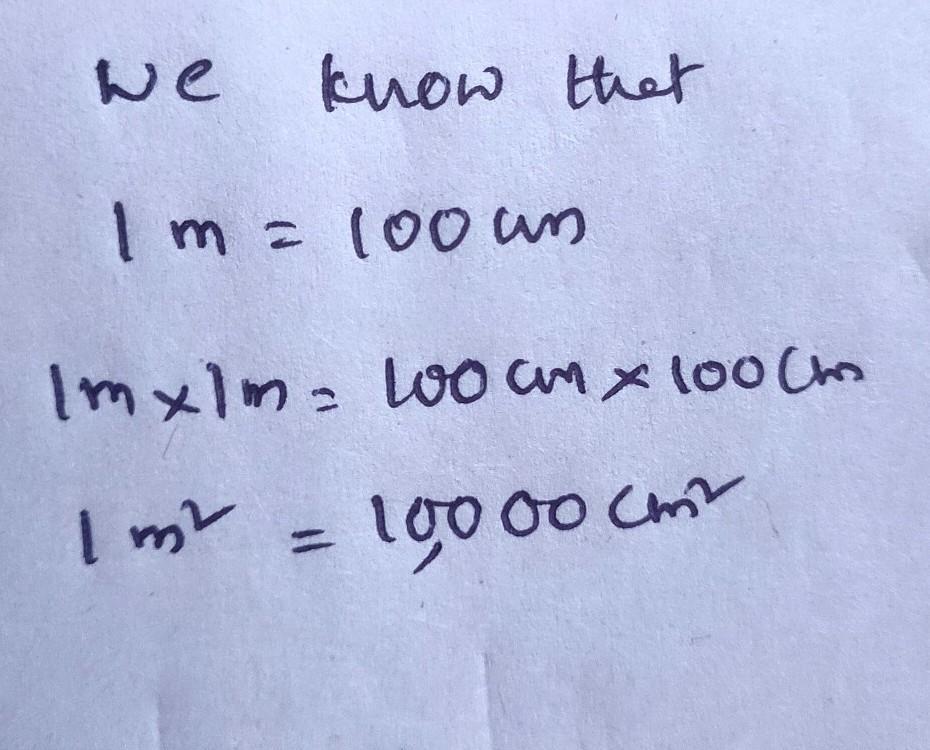 We know that
1 m = 100 cm
1m x 1m = 100 cm x 100 cm
1 m² = 10,000 cm²